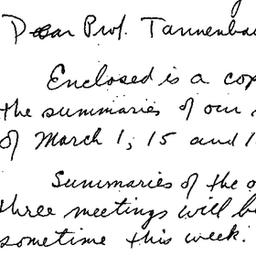 Dear Prof. Tannenbau
Enclosed is a cop
the summaries of our
of March 1, 15 and 1
Summaries of the o
three meetings will be
sometime this week.